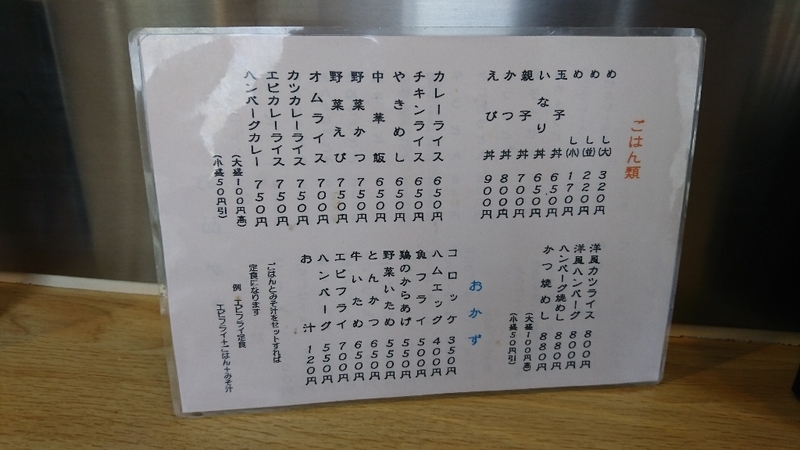 ごはん類
めし(大) 320円
めし(並) 220円
めし(小) 170円
玉子丼 650円
いなり丼 650円
親子丼 700円
かつ丼 800円
えび丼 900円
カレーライス 650円
チキンライス 650円
やきめし 650円
中華飯 650円
野菜かつ 750円
野菜えび 750円
オムライス 700円
カツカレーライス 750円
エビカレーライス 750円
ハンバーグカレー 750円
(大盛100円高)
(小盛50円引)
洋風カツライス 800円
洋風ハンバーグ 800円
ハンバーグ焼めし 880円
かつ焼めし 880円
(大盛100円高)
(小盛50円引)
おかず
コロッケ 350円
ハムエッグ 400円
魚フライ 500円
鶏のからあげ 550円
野菜いため 550円
とんかつ 650円
牛いため 650円
エビフライ 700円
ハンバーグ 550円
お汁 120円
ごはんとみそ汁をセットすれば
定食になります
例 エビフライ定食
エビフライ+ごはん+みそ汁